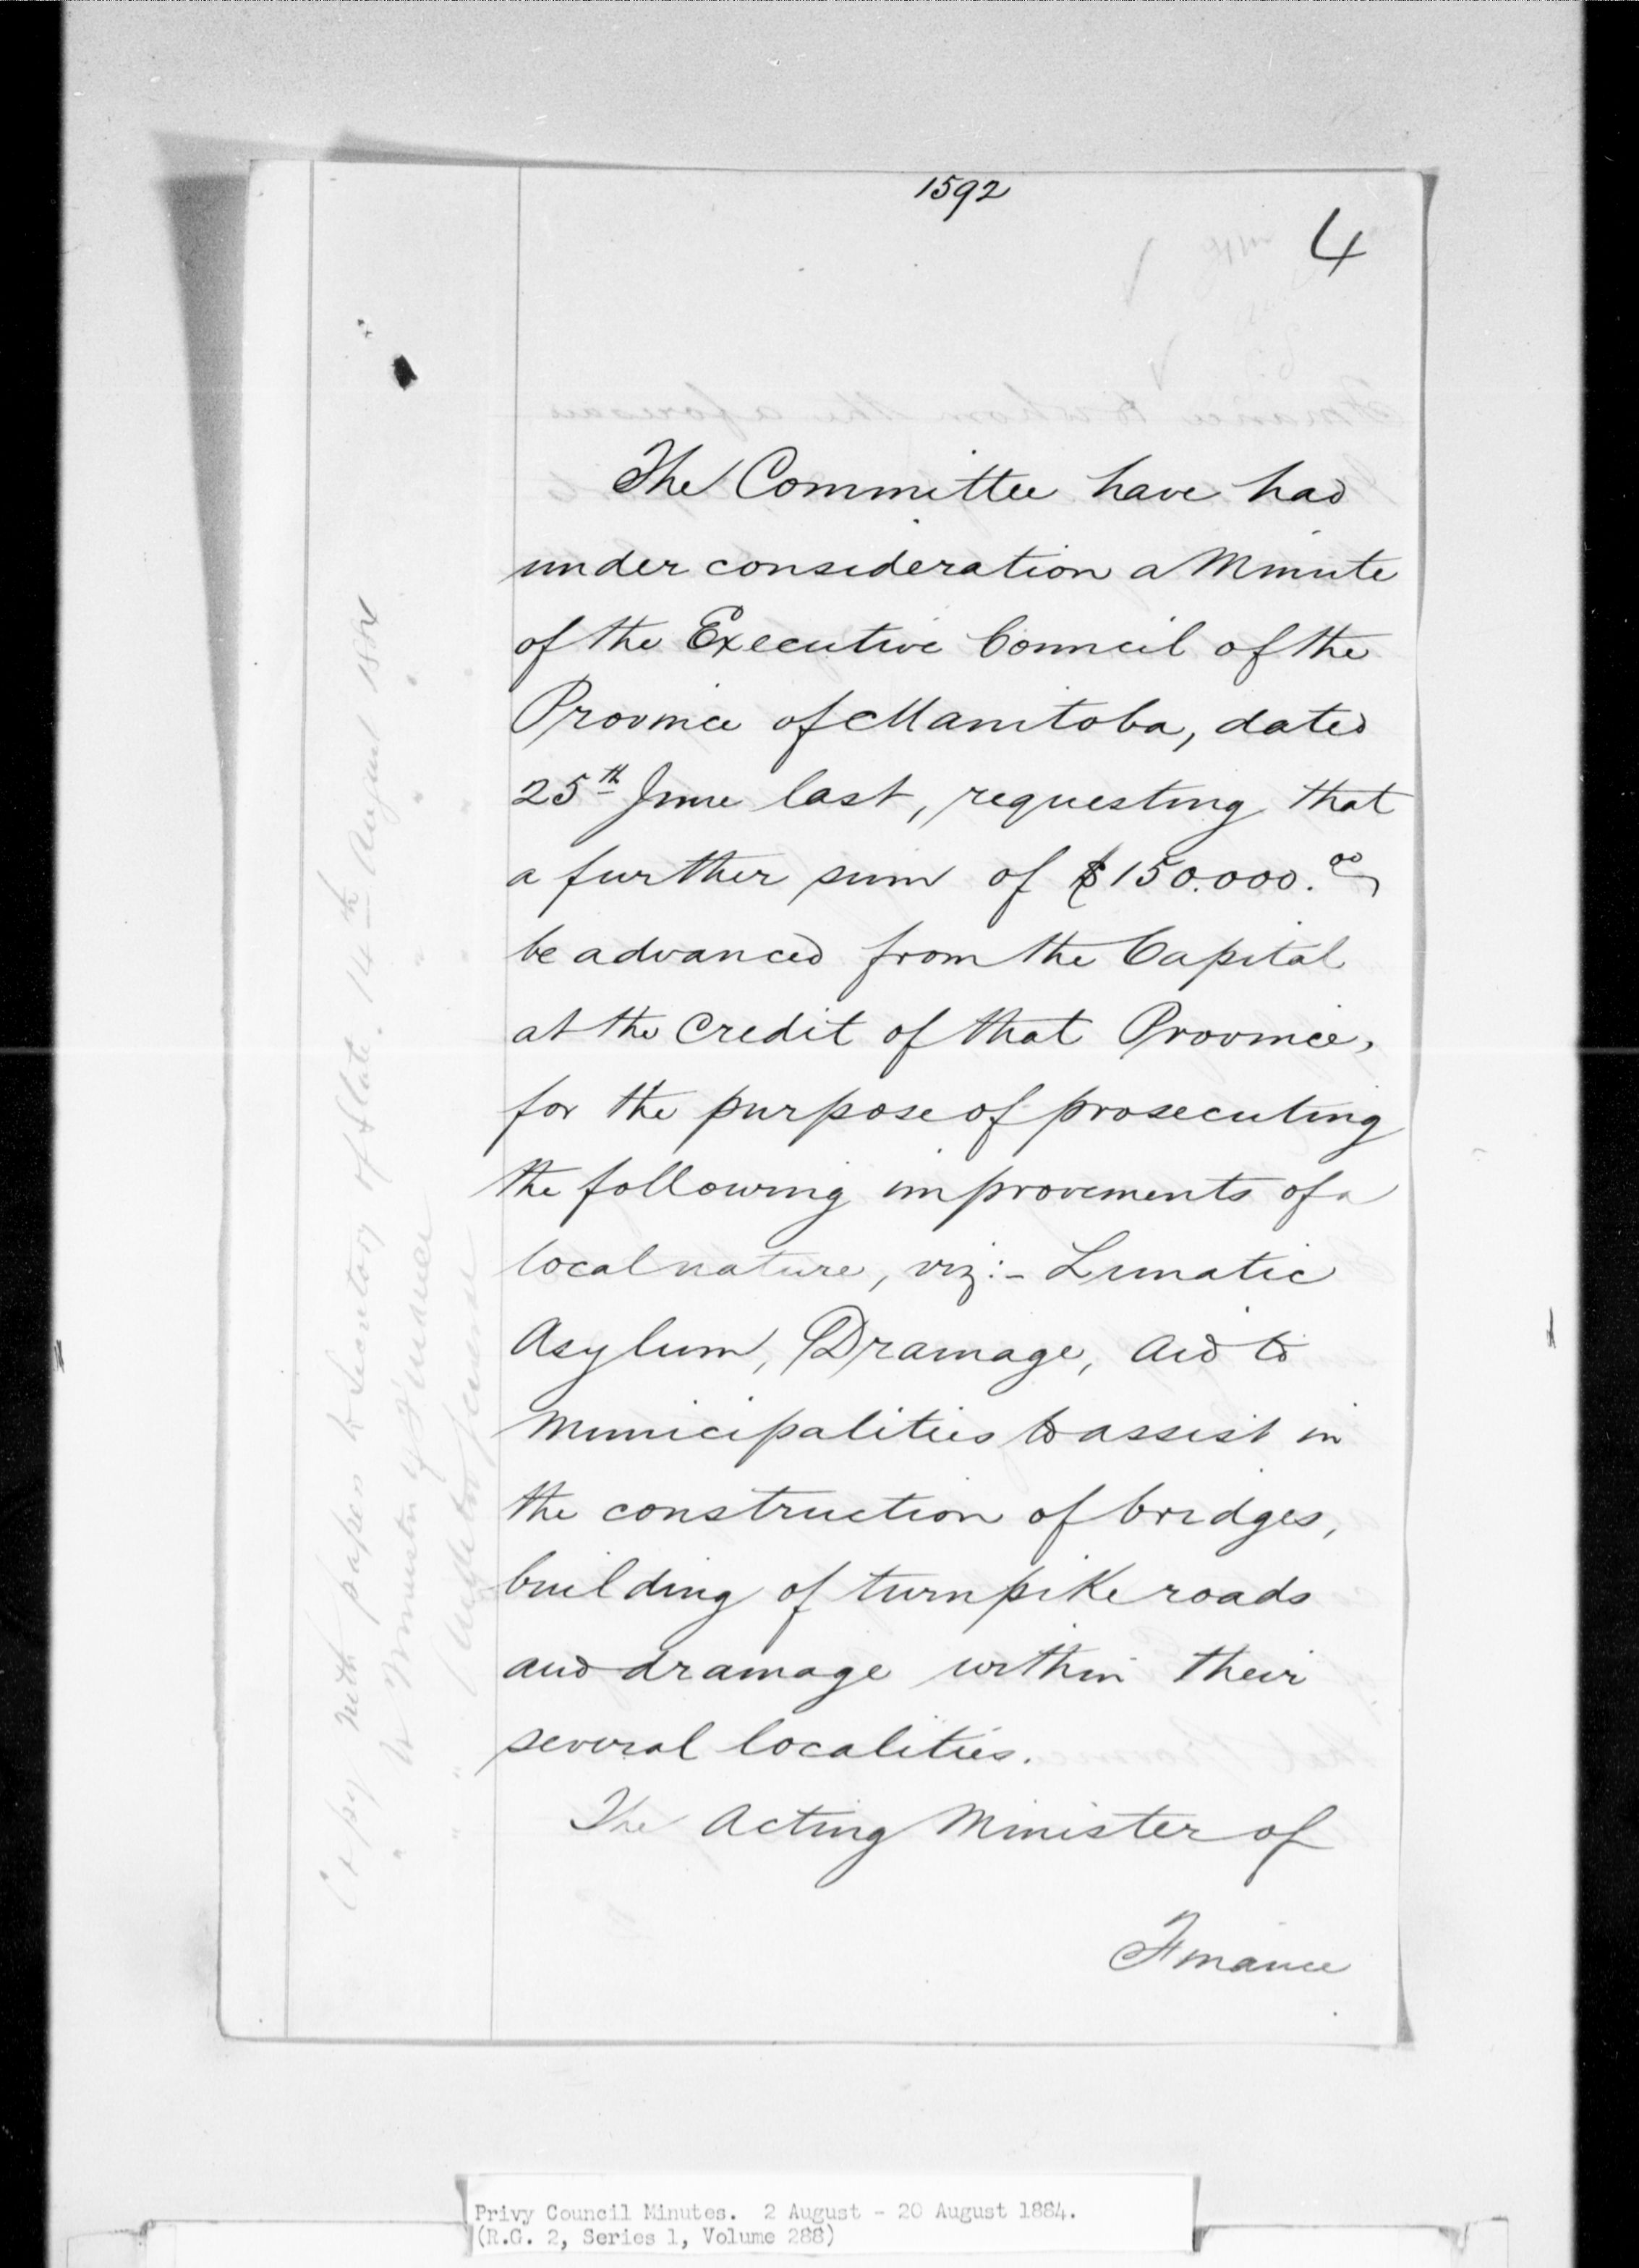 1592
4
The Committee have had
under consideration a Minute
of the Executive Council of the
Province of Manitoba, dated
25th June last, requesting that
a further sum of $150.000.00
be advanced from the Capital
at the Credit of that Province,
for the purpose of prosecuting
the following improvements of a
local nature, viz:- Lunatic
Asylum, Drainage, Aid to
Municipalities to assist in
the construction of bridges,
building of turnpike roads
and drainage within their
several localities.
The Acting Minister of
Finance
Copy with papers to Secretary of State. 14th August 1884
" to Minister of Finance " "
" " Auditor General " "
Privy Council Minutes. 2 August - 20 August 1884.
(R.G. 2, Series 1, Volume 288)